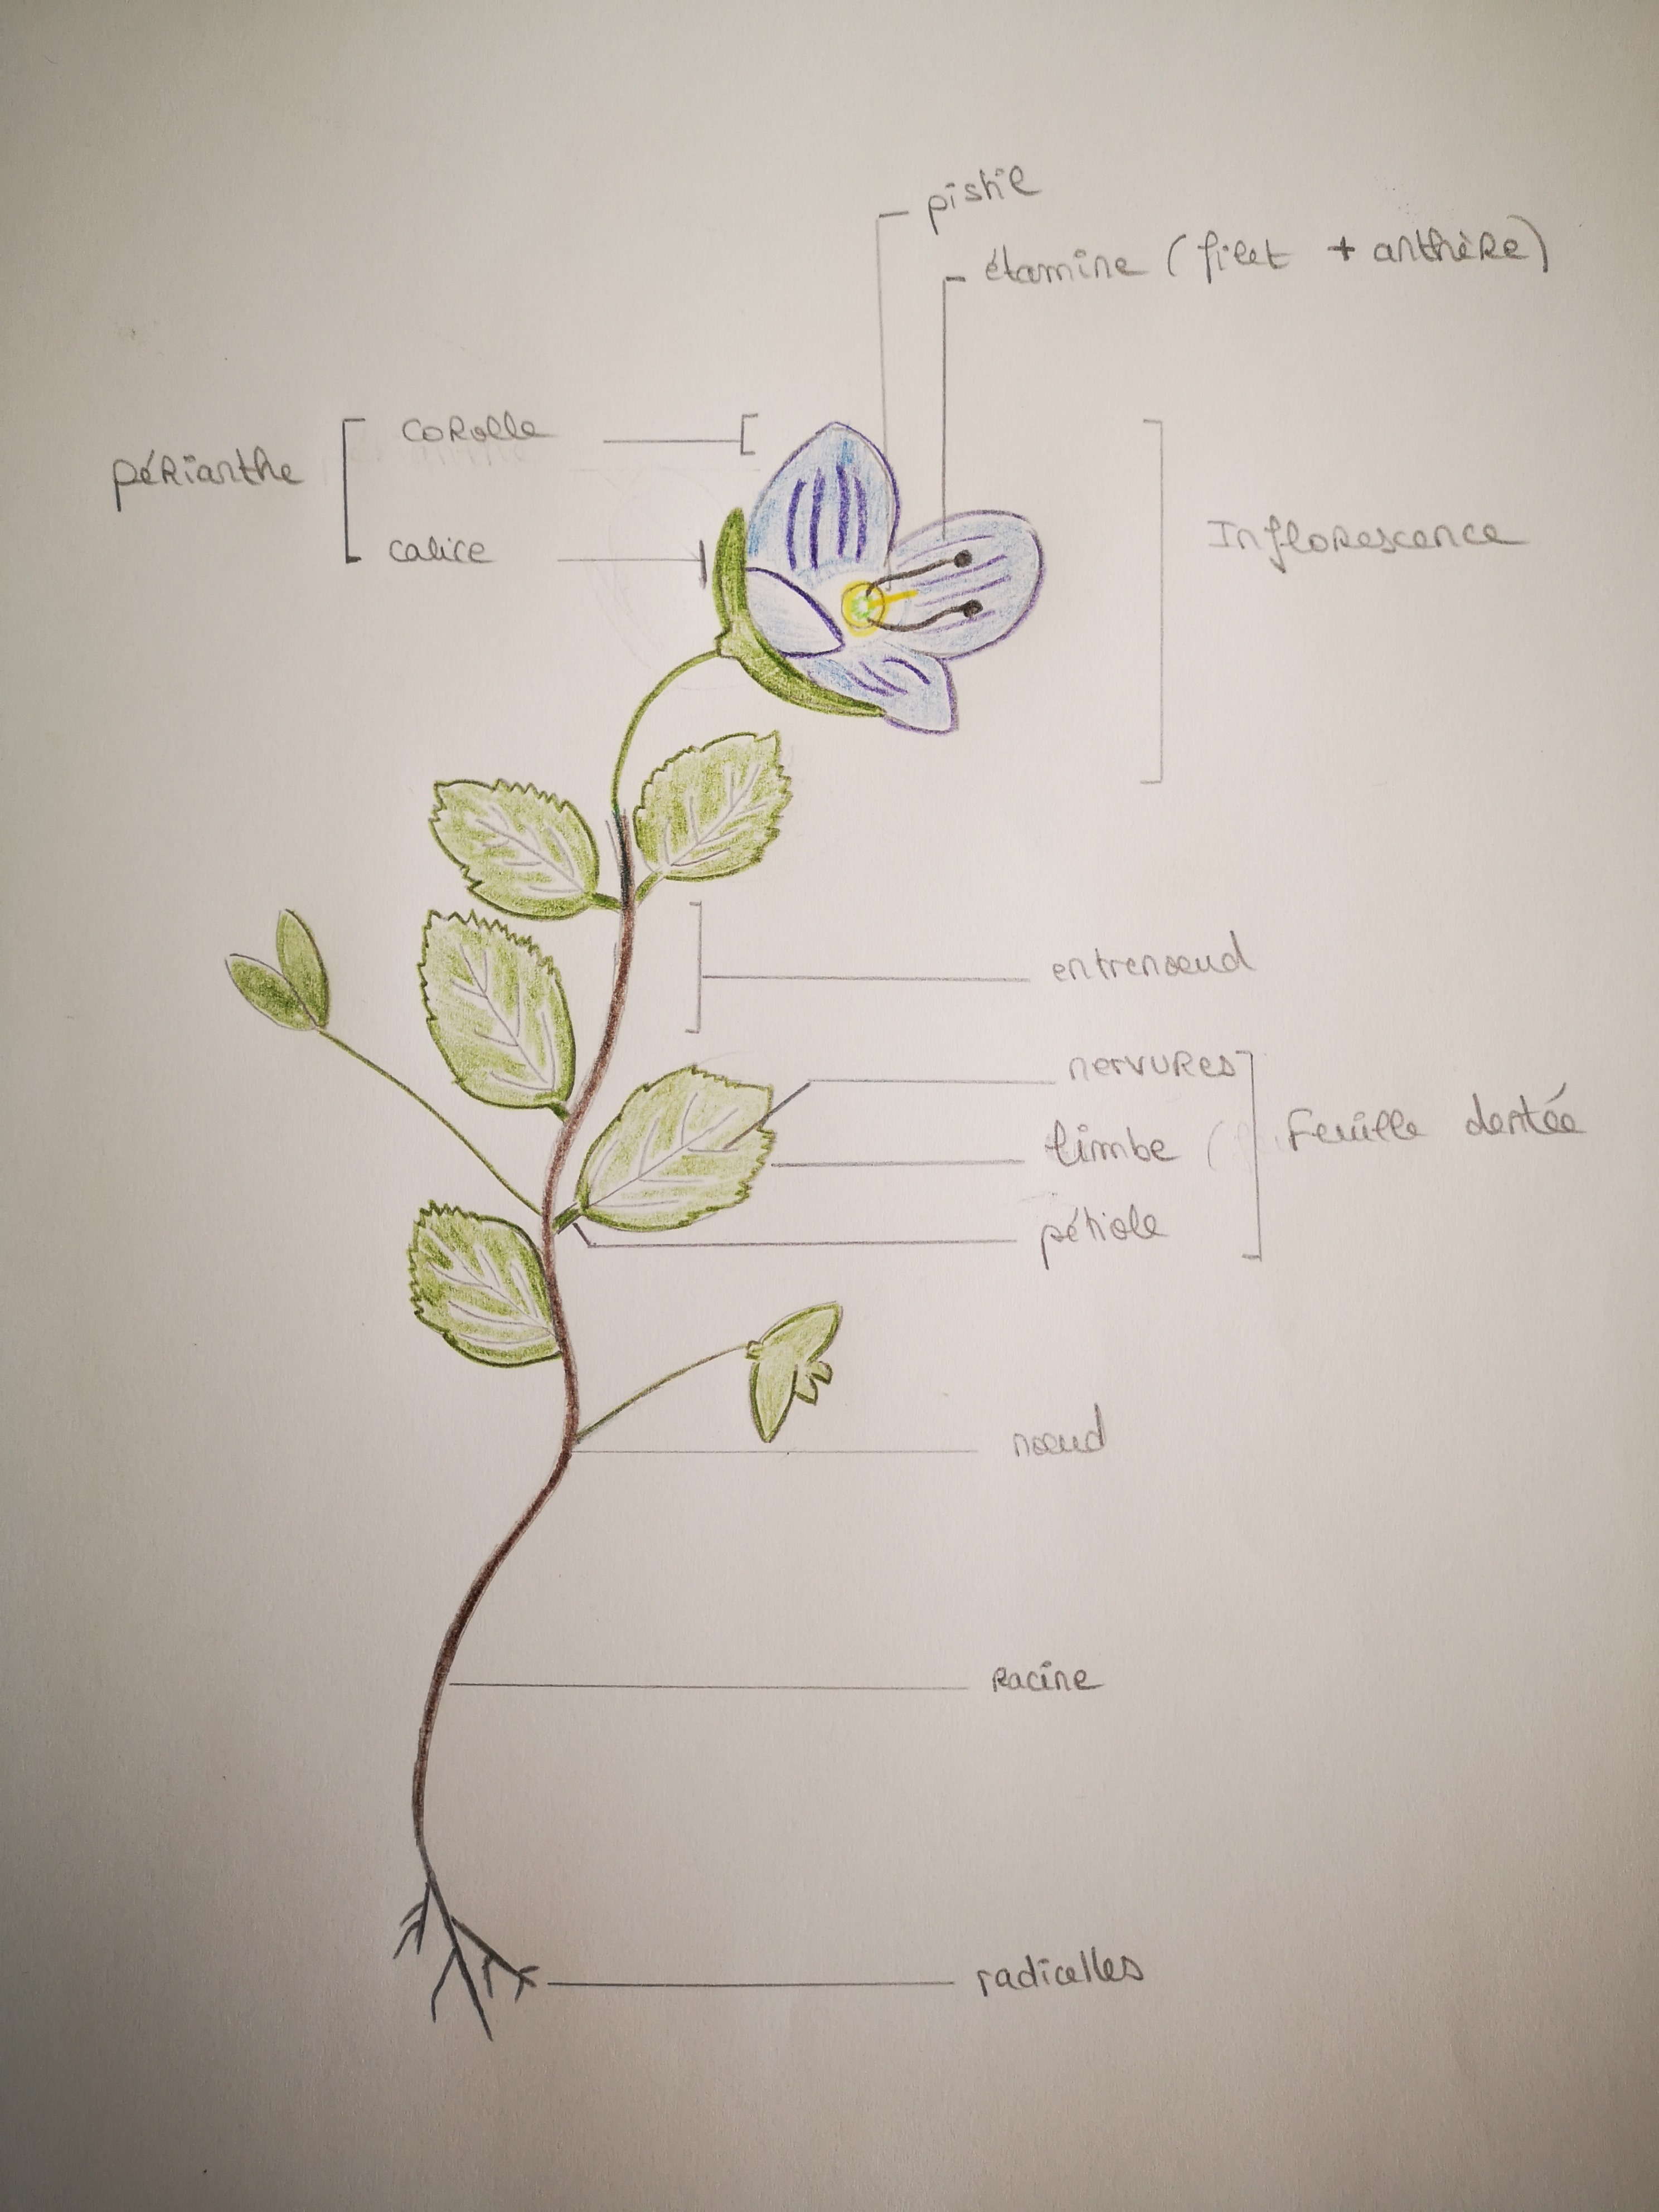 pistil
étamine (filet + anthère)
corolle
périanthe
calice
Inflorescence
entrenoeud
nervures
limbe (
Feuille dentée
pétiole
noeud
Racine
radicelles